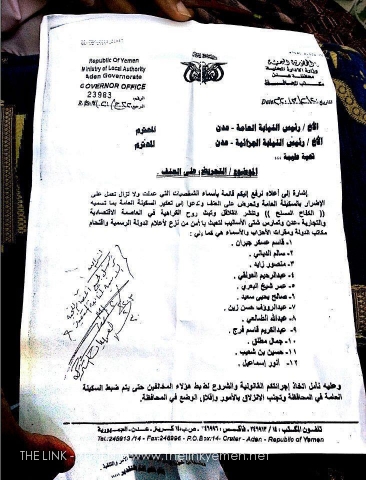 Republic Of Yemen
Ministry of Local Authority
Aden Governorate
GOVERNOR OFFICE
23983
الرقم
الجمهورية اليمنية
وزارة الإدارة المحلية
محافظة عدن
مكتب المحافظ
الأخ / رئيس النيابة العامة - عدن المحترم
الأخ / رئيس النيابة الجزائية - عدن المحترم
تحية طيبة ...
الموضوع / التحريض على العنف
إشارة إلى أعلاه نرفع إليكم قائمة بأسماء الشخصيات التي عملت ولا تزال تعمل على
الإضرار بالسكينة العامة وتحرض على العنف وتدعوا إلى تعكير السكينة العامة بما تسميه
(( الكفاح المسلح )) وتنشر الانفلات وتبث روح الكراهية في العاصمة الاقتصادية
والتجارية - عدن وتمارس شتى الأساليب للعبث بالأمن من نزع لأعلام الدولة الرسمية واقتحام
مكاتب الدولة ومقرات الأحزاب والأسماء هي كما يلي :
١- قاسم عسكر جبران
٢- سالم الدياني
٣- منصور زيد
٤- عبدالرحيم العولقي
٥- عمر شيخ
٦- صالح يحيى سعيد
٧- عبدالرؤوف حسن زين
٨- عبدالله الضالعي
٩- عبدالكريم قاسم فرج
١٠- جمال مطلق
١١- حسين بن شعيب
١٢- أنور إسماعيل
وعليه نأمل اتخاذ إجراءاتكم القانونية والشروع لضبط هؤلاء المخالفين حتى يتم ضبط السكينة
العامة في المحافظة وتجنب الانزلاق بالأمور وإقلاق الوضع في المحافظة.
Tel:246913 /14 - Fax:246996 - P.O.Box:14- Crater - Aden - Republic of Yemen
THE LINK - www.thelinkyemen.net